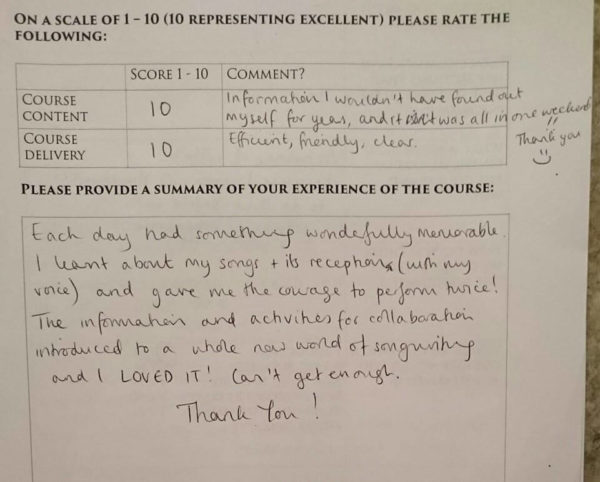 ON A SCALE OF 1 – 10 (10 REPRESENTING EXCELLENT) PLEASE RATE THE
FOLLOWING:
SCORE 1 - 10 COMMENT?
COURSE CONTENT 10 Information I wouldn't have found out
myself for years, and it was all in one weekend!!
Thank you
COURSE DELIVERY 10 Efficient, friendly, clear.
PLEASE PROVIDE A SUMMARY OF YOUR EXPERIENCE OF THE COURSE:
Each day had something wondefully memorable.
I leant about my songs + its receptions (with my
voice) and gave me the courage to perform twice!
The information and activities for collaboration
introduced to a whole new world of songwriting
and I LOVED IT! Can't get enough.
Thank You!